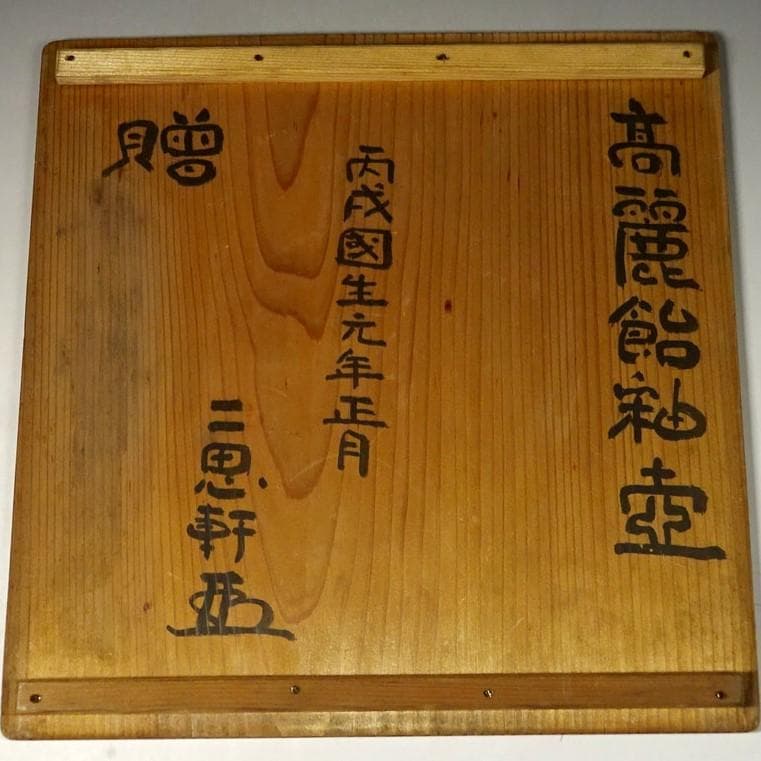 高麗飴釉壺
丙戌國生元年正月
贈
二思軒